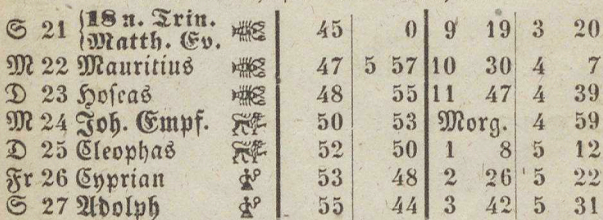 S 21 {18 n. Trin. 45 0 9 19 3 20
Matth. Ev.
M 22 Mauritius 47 5 57 10 30 4 7
D 23 Hoseas 48 55 11 47 4 39
M 24 Joh. Empf. 50 53 Morg. 4 59
D 25 Cleophas 52 50 1 8 5 12
Fr 26 Cyprian 53 48 2 26 5 22
S 27 Adolph 55 44 3 42 5 31